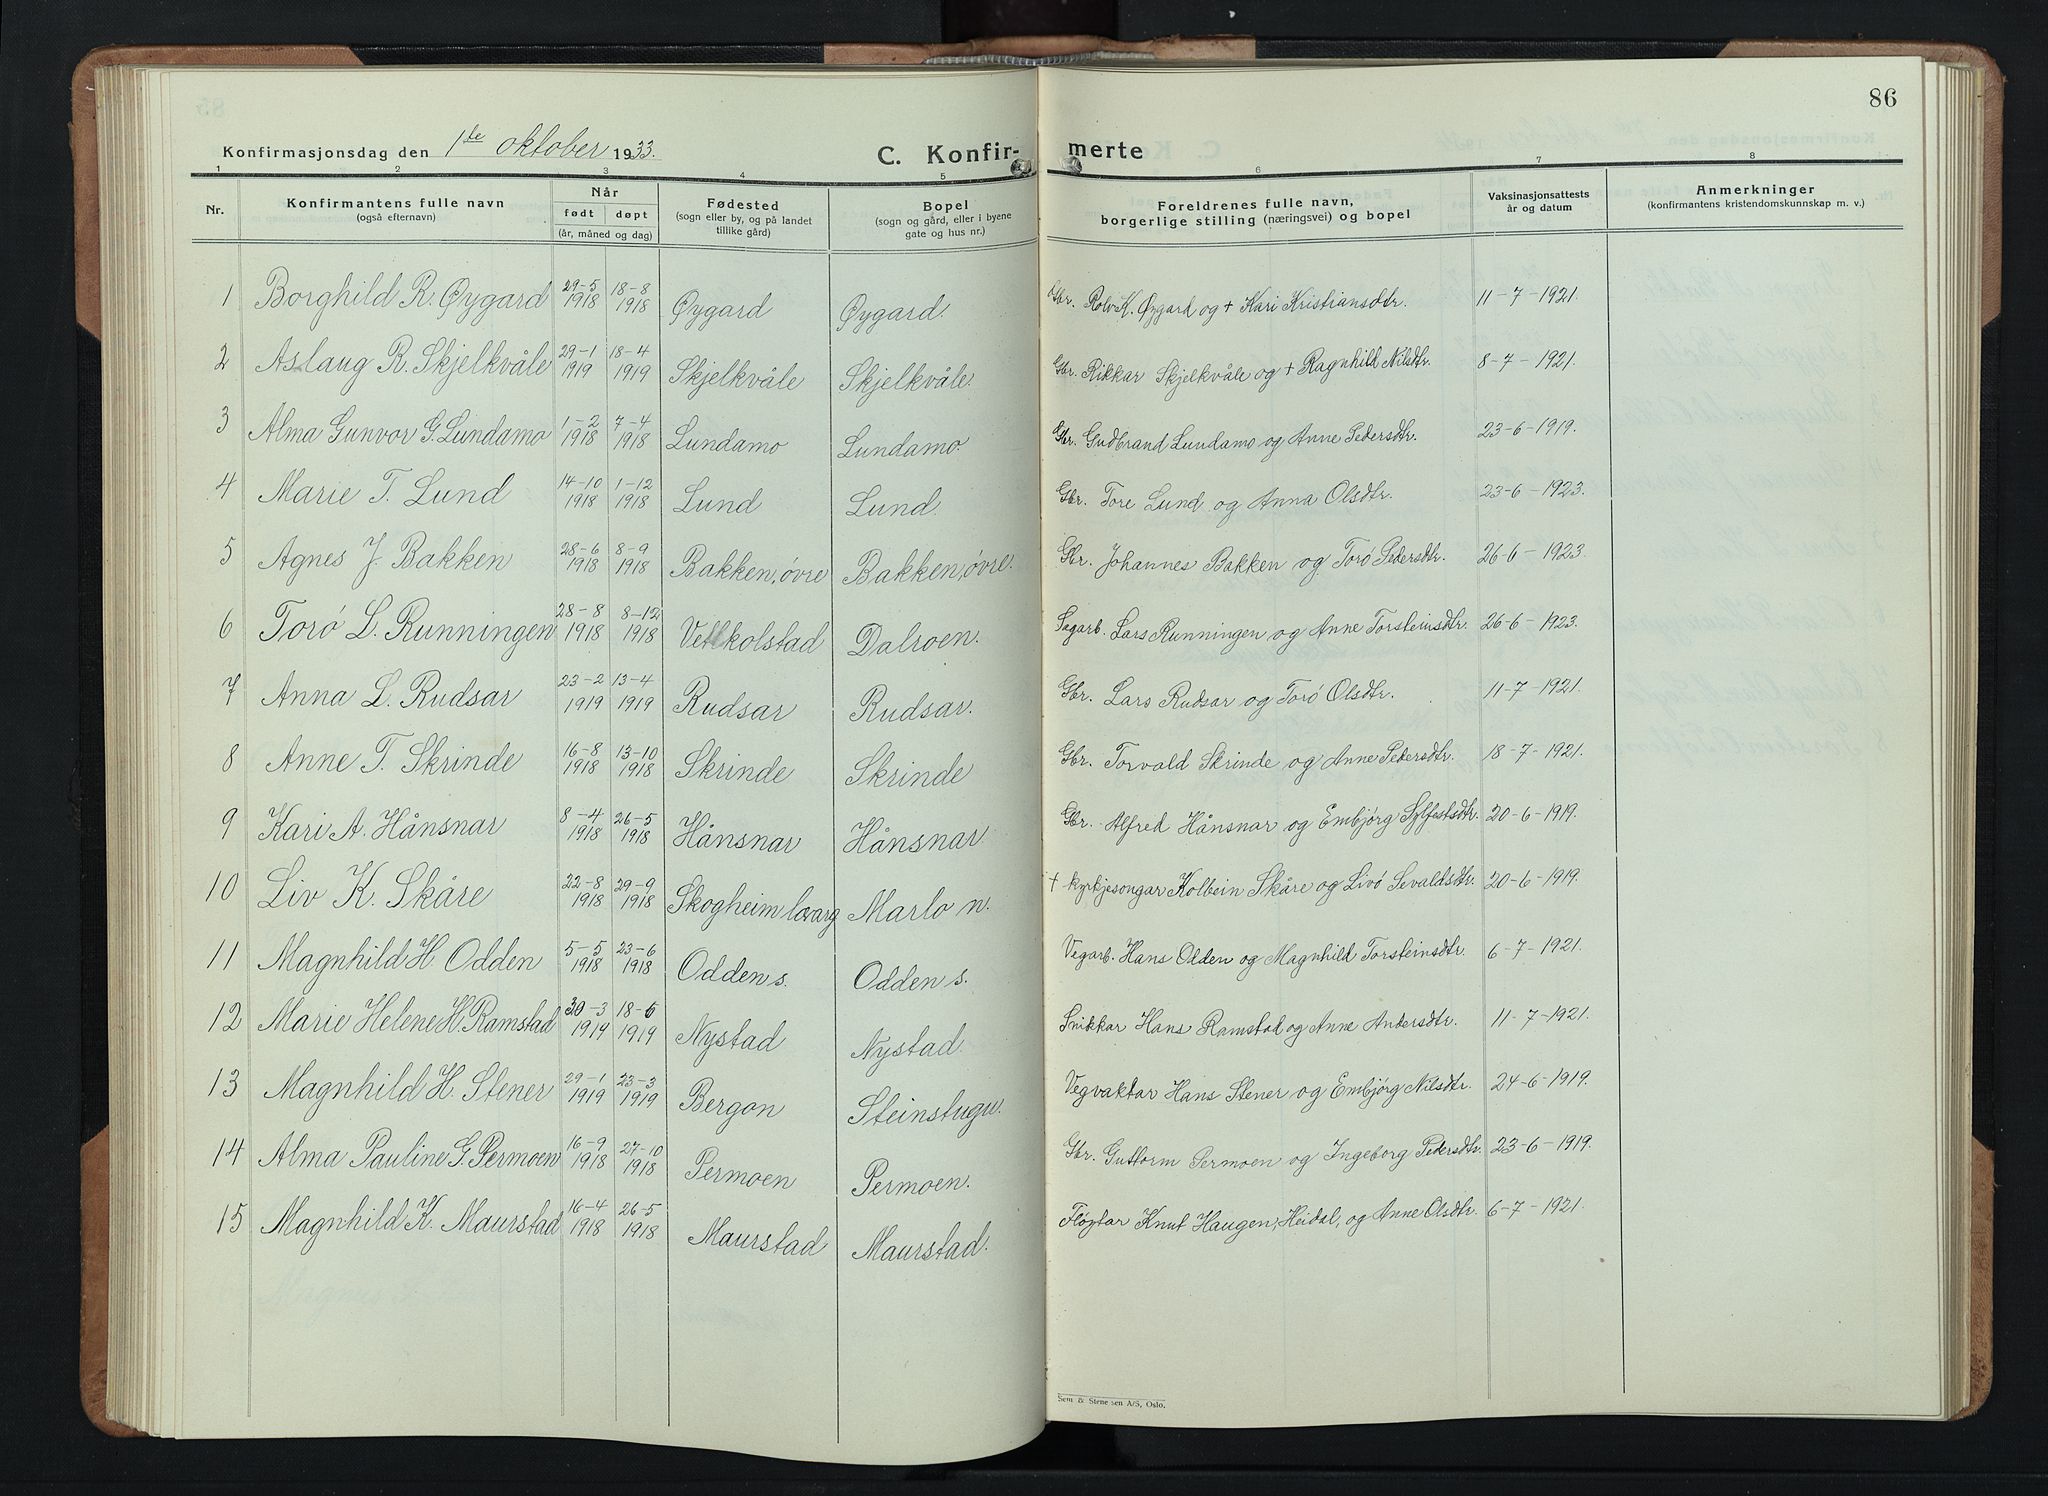 86
Konfirmasjonsdag den 1ste oktober 1933.
C. Konfirmerte
1 2 3 4 5 6 7 8
Nr.
Konfirmantens fulle navn
(også efternavn)
Når
født døpt
(år, måned og dag)
Fødested
(sogn eller by, og på landet
tillike gård)
Bopel
(sogn og gård, eller i byene
gate og hus nr.)
Foreldrenes fulle navn,
borgerlige stilling (næringsvei) og bopel
Vaksinasjonsattests
år og datum
Anmerkninger
(konfirmantens kristendomskunnskap m. v.)
1 Borghild R. Øygard 29-5 1918 18-8 1918 Øygard Øygard. Gbr. Rolv K. Øygard og + Kari Kristiansdtr. 11-7-1921.
2 Aslaug R. Skjelkvåle 29-1 1919 18-4 1919 Skjelkvåle Skjelkvåle. Gbr. Rikkar Skjelkvåle og + Ragnhild Nilsdtr. 8-7-1921.
3 Alma Gunvor G. Lundamo 1-2 1918 7-4 1918 Lundamo Lundamo. Gbr. Gudbrand Lundamo og Anne Pedersdtr. 23-6-1919.
4 Marie T. Lund 14-10 1918 1-12 1918 Lund Lund. Gbr. Tore Lund og Anna Olsdtr. 23-6-1923.
5 Agnes J. Bakken 28-6 1918 8-9 1918 Bakken, øvre Bakken, øvre. Gbr. Johannes Bakken og Torø Pedersdtr. 26-6-1923.
6 Torø L. Runningen 28-8 1918 8-12 1918 Vetlkolstad Dalroen. Sagarb. Lars Runningen og Anne Torsteinsdtr. 26-6-1923.
7 Anna L. Rudsar 23-2 1919 13-4 1919 Rudsar Rudsar. Gbr. Lars Rudsar og Torø Olsdtr. 11-7-1921.
8 Anne T. Skrinde 16-8 1918 13-10 1918 Skrinde Skrinde Gbr. Torvald Skrinde og Anne Pedersdtr. 18-7-1921.
9 Kari A. Hånsnar 8-4 1918 26-5 1918 Hånsnar Hånsnar. Gbr. Alfred Hånsnar og Embjørg Sylfestsdtr. 20-6-1919.
10 Liv K. Skåre 22-8 1918 29-9 1918 Skogheim Marlo n. + kyrkjesongar Kolbein Skåre og Livø Sevaldsdtr. 20-6-1919.
11 Magnhild H. Odden 5-5 1918 23-6 1918 Odden s. Odden s. Vegarb. Hans Odden og Magnhild Torsteinsdtr. 6-7-1921.
12 Marie Helene H. Ramstad 30-3 1919 18-6 1919 Nystad Nystad. Snikkar Hans Ramstad og Anne Andersdtr. 11-7-1921.
13 Magnhild H. Stener 29-1 1919 23-3 1919 Bergon Steinstugu. Vegvaktar Hans Stener og Embjørg Nilsdtr. 24-6-1919.
14 Alma Pauline G. Permoen 16-9 1918 27-10 1918 Permoen Permoen. Gbr. Guttorm Permoen og Ingeborg Pedersdtr. 23-6-1919.
15 Magnhild K. Maurstad 16-4 1918 26-5 1918 Maurstad Maurstad. Fløytar Knut Haugen, Heidal, og Anne Olsdtr. 6-7-1921.
Sem & Stenersen A/S, Oslo.